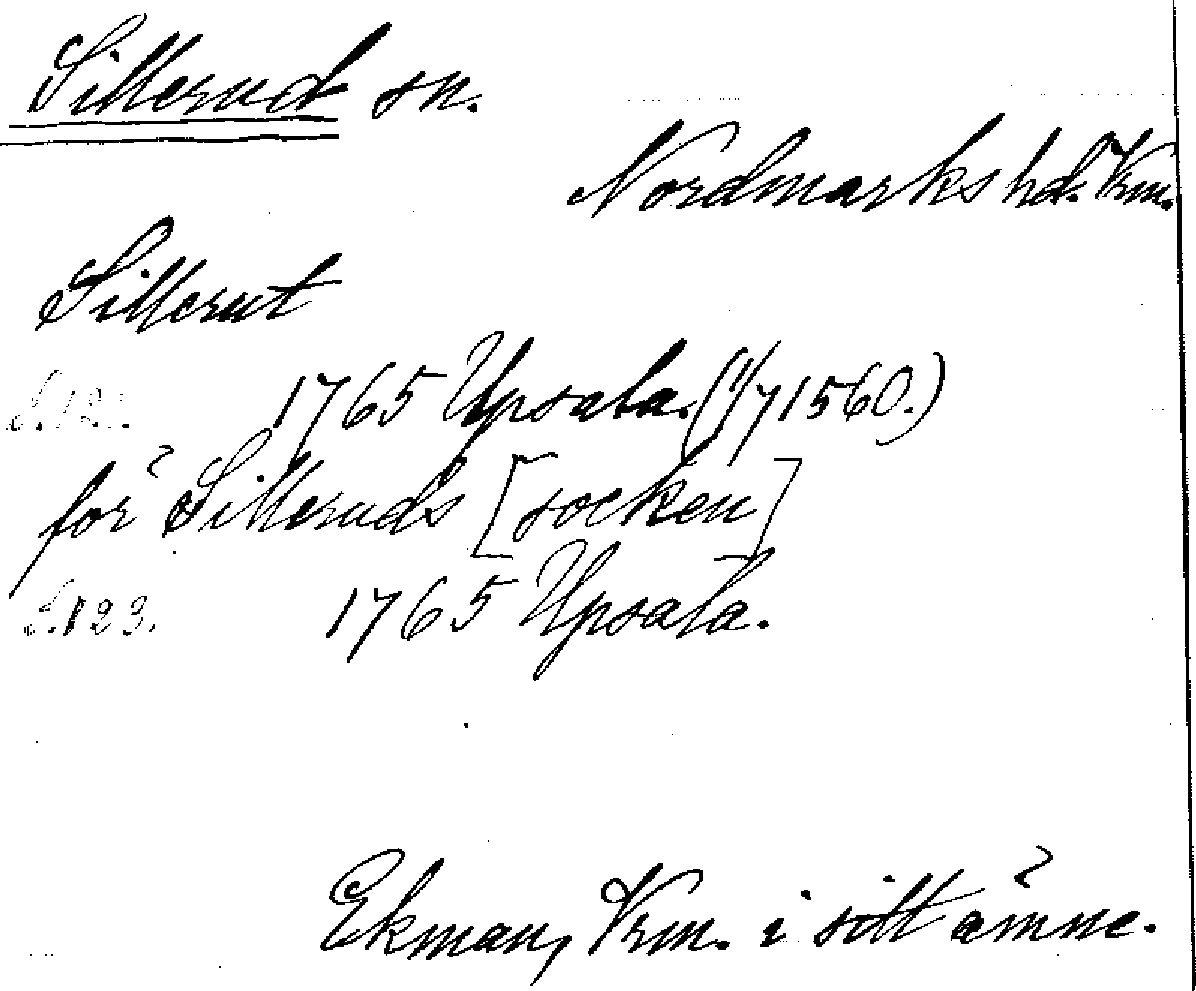 Sillerud sn.
Nordmarks hd. Vrm.
Sillerut
S. 121. 1765 Upsala. (1/7 1560.)
för Silleruds [socken]
S. 123. 1765 Upsala.
Ekman, Vrm. i sitt ämne.